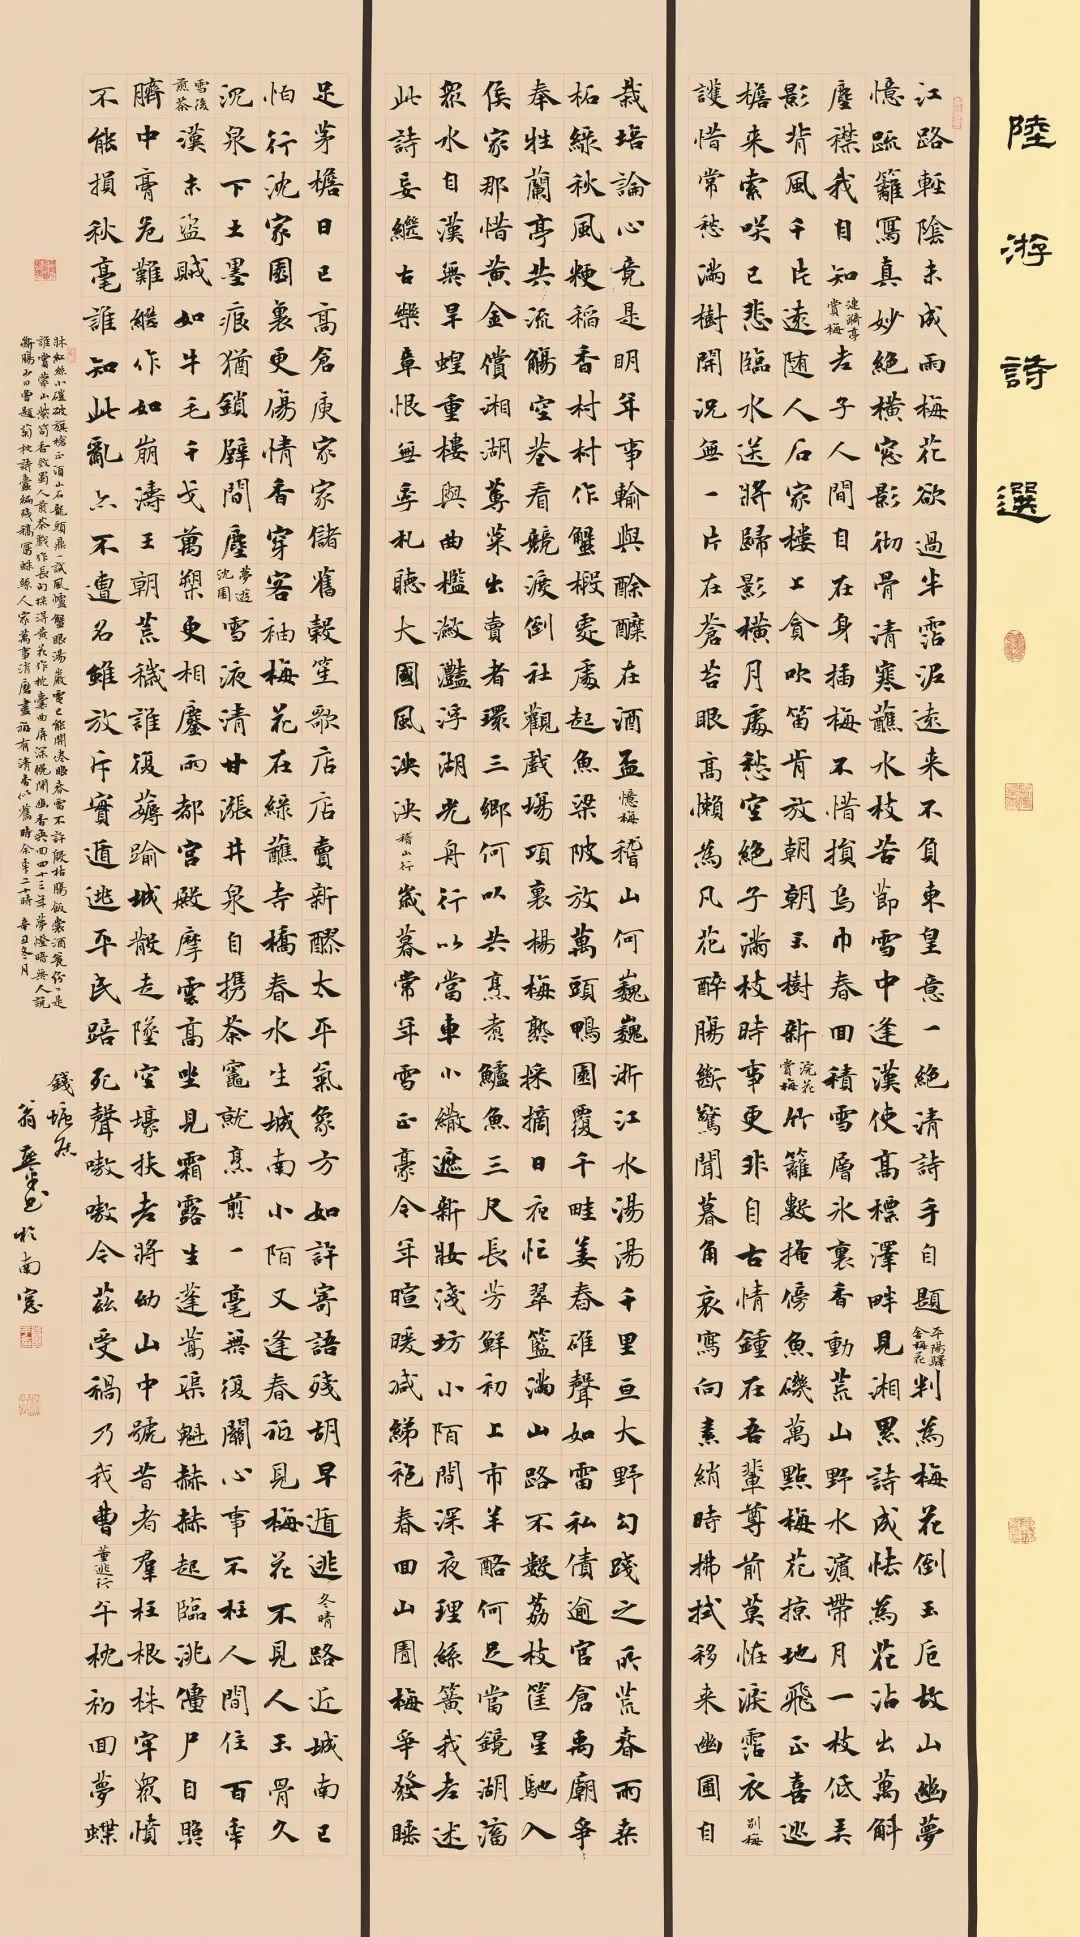 陸游詩選
江路輕陰未成雨梅花欲過半霑泥遠來不負東皇意一絕清詩手自題平陽驛舍梅花判為梅花倒玉卮故山幽夢
憶疏籬寫真妙絕橫窗影徹骨清寒蘸水枝苦節雪中逢漢使高標澤畔見湘纍詩成怯為花沾出萬斛
塵襟我自知漣漪亭賞梅老子人間自在身插梅不惜損烏巾春回積雪層冰裏香動荒山野水濱帶月一枝低弄
影背風千片遠隨人石家樓上貪吹笛肯放朝朝玉樹新浣花賞梅竹籬數掩傍魚磯萬點梅花掠地飛正喜巡
檐來索笑已悲臨水送將歸影橫月處愁空絕子滿枝時事更非自古情鍾在吾輩尊前莫怪淚霑衣別梅
護惜常愁滿樹開況無一片在蒼苔眼高懶為凡花醉腸斷驚聞暮角哀寫向素綃時拂拭移來幽圃自
栽培論心竟是明年事輸與酴醾在酒盃憶梅稽山何巍巍浙江水湯湯千里亘大野勾踐之所荒春雨桑
柘綠秋風粳稻香村村作蟹椴處處起魚梁陂放萬頭鴨園覆千畦姜舂碓聲如雷私債逾官倉禹廟爭
奉牲蘭亭共流觴空巷看競渡倒社觀戲場項裏楊梅熟採摘日夜忙翠籃滿山路不數荔枝筐星馳入
侯家那惜黃金償湘湖蓴菜出賣者環三鄉何以共烹煮鱸魚三尺長芳鮮初上市羊酪何足當鏡湖瀦
眾水自漢無旱蝗重樓與曲檻瀲灩浮湖光舟行以當車小繖遮新妝淺坊小陌間深夜理絲簧我老述
此詩妄繼古樂章恨無季札聽大國風泱泱稽山行歲暮常年雪正豪今年暄暖減綈袍春回山圃梅爭發睡
足茅檐日已高倉庾家家儲舊穀笙歌店店賣新醪太平氣象方如許寄語殘胡早遁逃冬晴路近城南已
怕行沈家園裏更傷情香穿客袖梅花在綠蘸寺橋春水生城南小陌又逢春祇見梅花不見人玉骨久
沉泉下土墨痕猶鎖壁間塵夢遊沈園雪液清甘漲井泉自攜茶竈就烹煎一毫無復關心事不枉人間住百年
雪後煎茶漢末盜賊如牛毛千戈萬槊更相鏖兩都宮殿摩雲高坐見霜露生蓬蒿渠魁赫赫起臨洮僵尸自照
臍中膏危難繼作如崩濤王朝荒穢誰復薅踰城散走墜空壕扶老將幼山中號昔者群枉根株牢眾憤
不能損秋毫誰知此亂亦不遭名雖放斥實遁逃平民踣死聲嗷嗷今茲受禍乃我曹董逃行午枕初回夢蝶
牀紅絲小磑破旗槍正須山石龍頭鼎一試風爐蟹眼湯巖電已能開倦眼春雷不許殷枯腸飯囊酒甕紛紛是
誰賞蒙山紫筍香效蜀人煎茶戲作長句採得黃花作枕囊曲屏深幌閟幽香喚回四十三年夢燈暗無人說
斷腸少日曾題菊枕詩蠹編殘稿蛛絲人家萬事消磨盡衹有清香似舊時余年二十時辛丑冬月
錢塘居
翁書於南窗